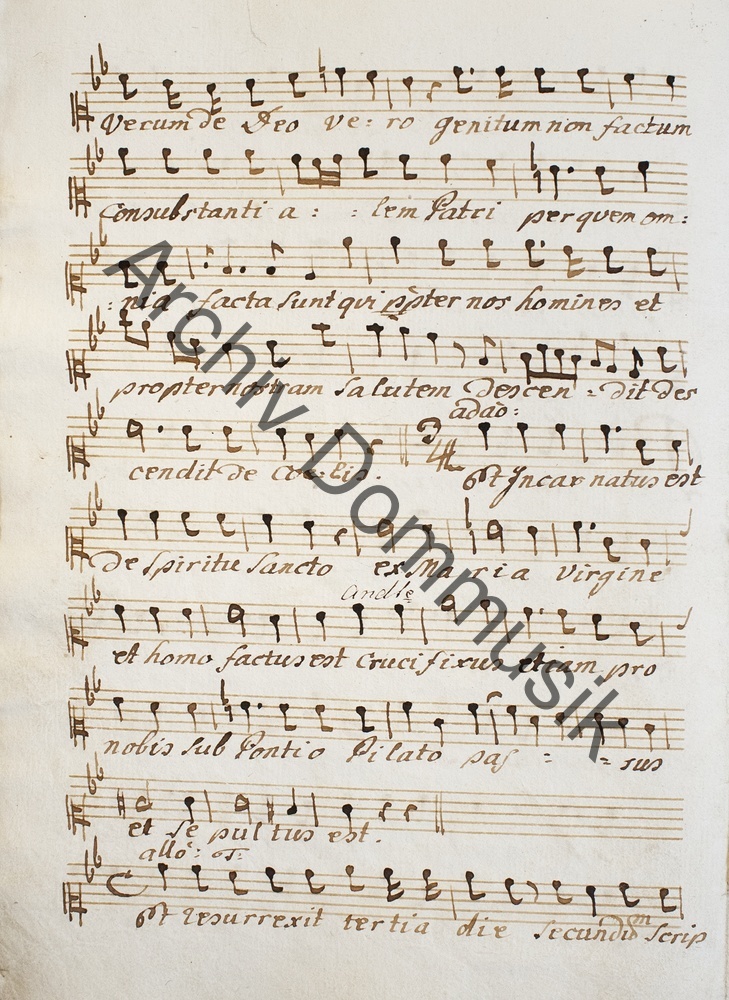 Verum de Deo ve: ro genitum non factum
Consubstanti a : : lem Patri per quem om:
: nia facta sunt qui ppter nos homines et
propter nostram salutem descen = dit des
adao:
cendit de Coe: lis. Et Incarnatus est
de Spiritu Sancto ex Maria Virgine
Andte
et homo factus est Crucifixus etiam pro
nobis sub Pontio Pilato pas = = sus
et se pul tus est.
allo:
Et resurrexit tertia die secundum Scrip
Archiv Dommusik